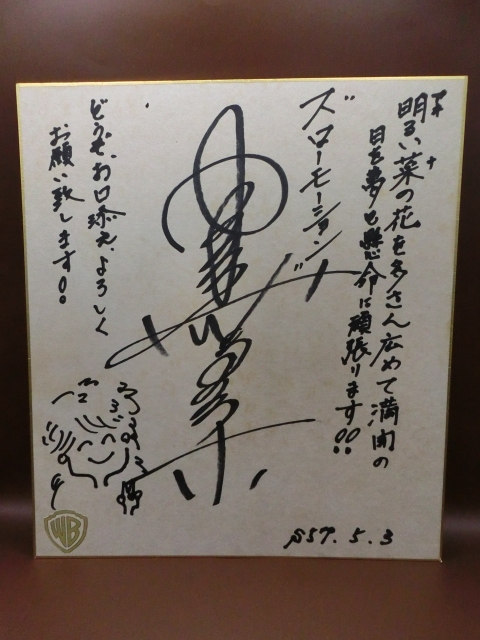 明るい菜の花をタさん広めて満開の
アキ ナ
日を夢と懸命に頑張ります!!
スローモーション
中森明菜
どうぞお口添え、よろしく
お願い致します!!
WB
S57.5.3